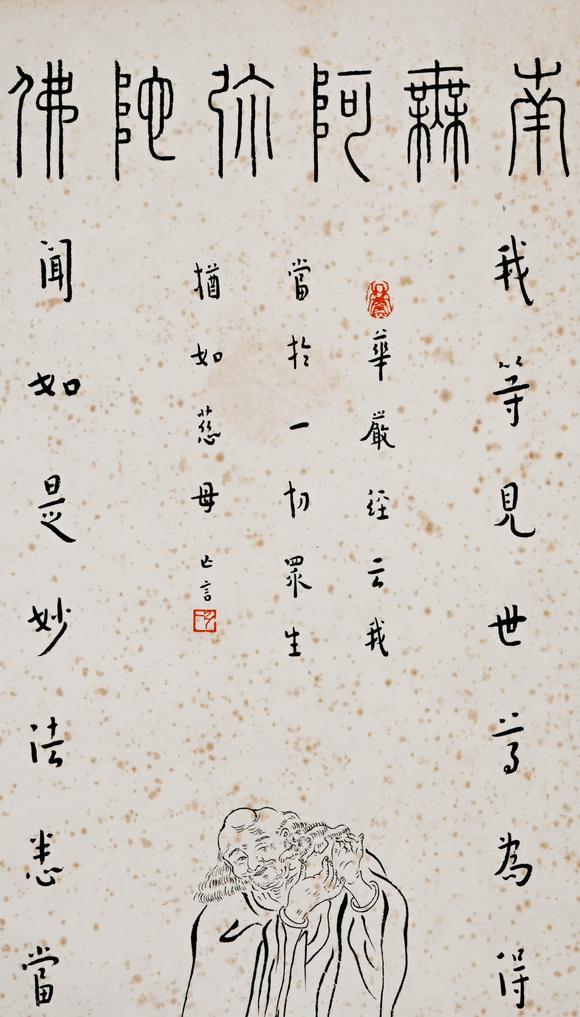 南無阿弥陀佛
我等見世尊為得
華嚴經云我
當於一切眾生
猶如慈母 亡言
聞如是妙法悉當